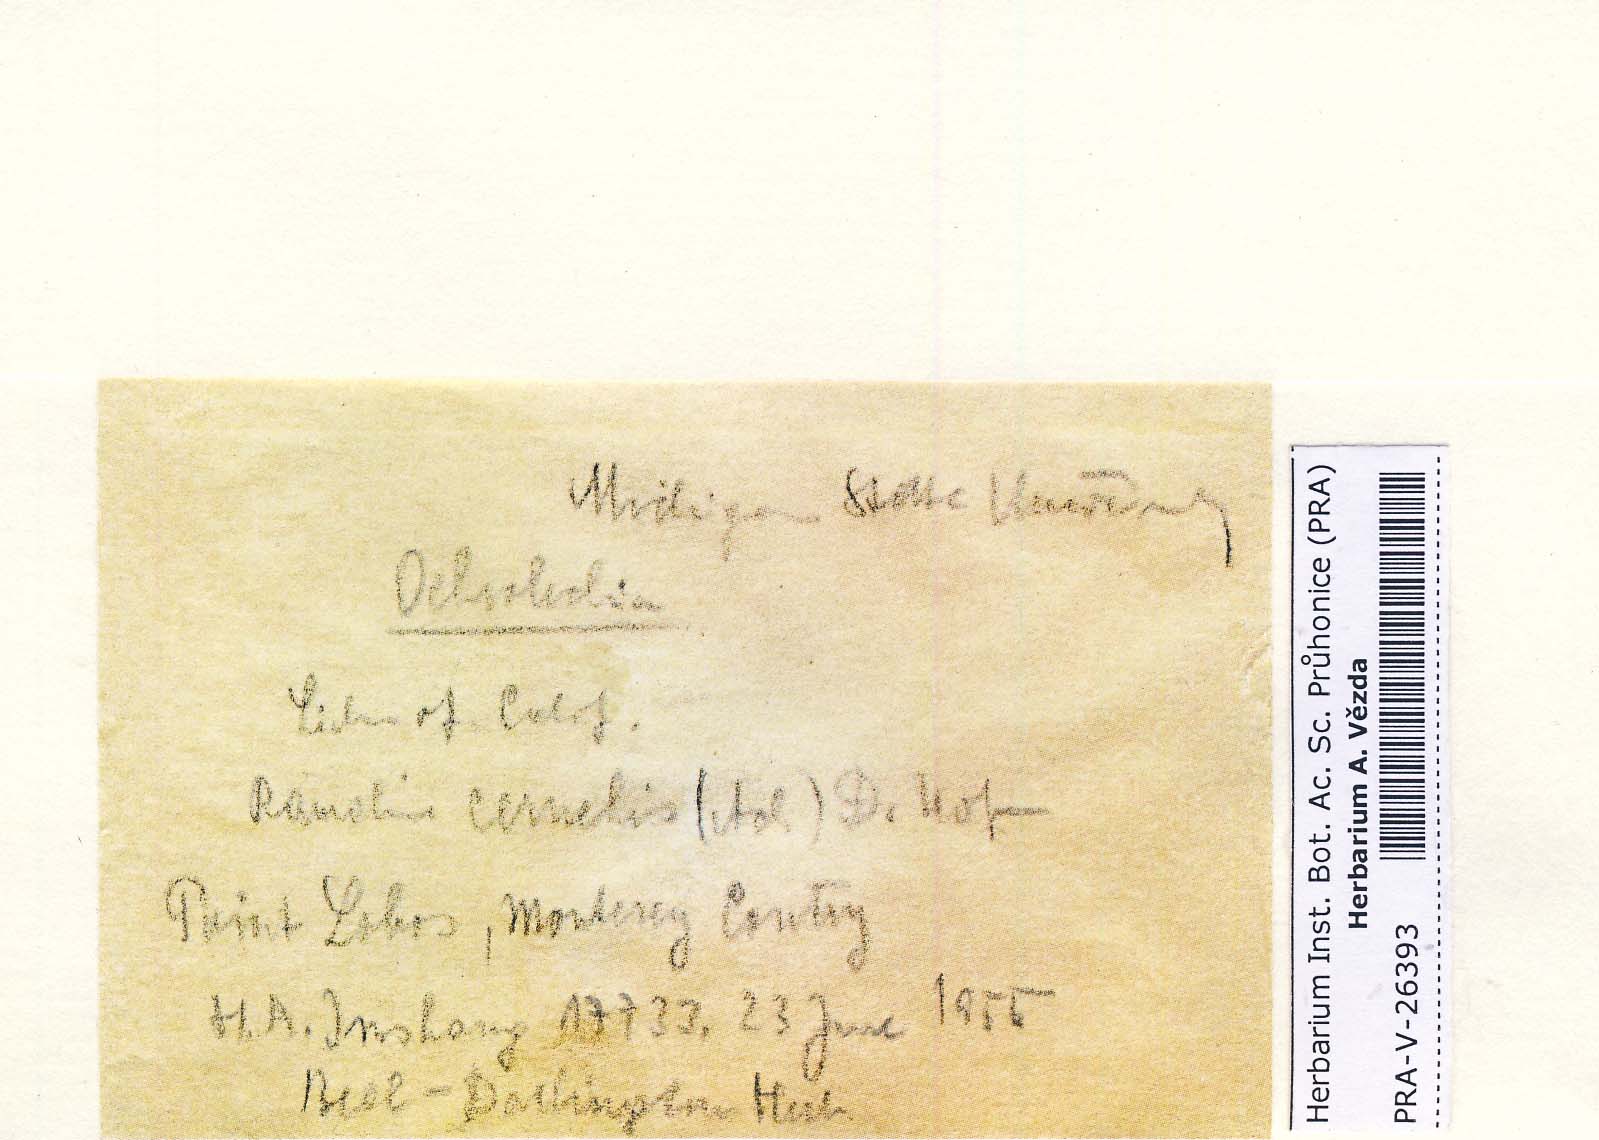 Michigan State University
Ochrolechia
Lich. of Calif.
Ramalina (Ach) D. Hof
Point Lobos, Monterey Contry
H.A. Imshaug 17733. 23 June 1955
Beal - Darlington Herb
Herbarium Inst. Bot. Ac. Sc. Průhonice (PRA)
Herbarium A. Vězda
PRA-V-26393